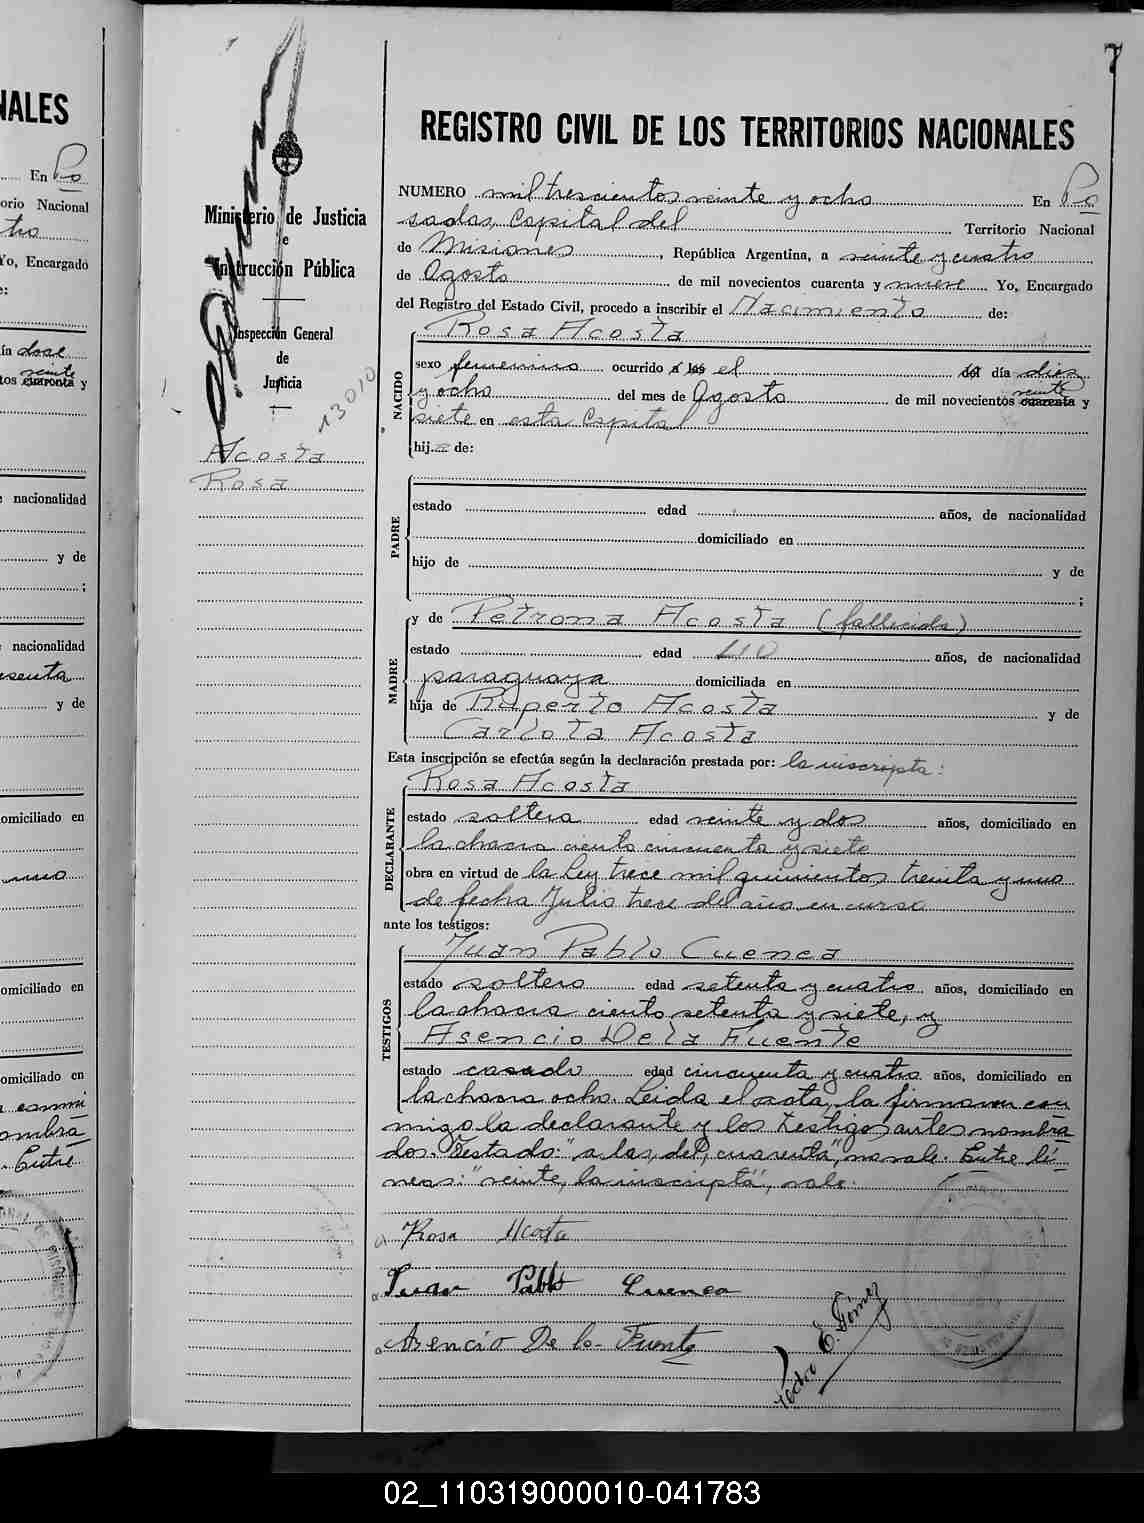 NALES
En Po
orio Nacional
Yo, Encargado
e:
ía doce
veinte
tos cuaronta y
e nacionalidad
y de
;
e nacionalidad
esenta
y de
omiciliado en
omiciliado en
omiciliado en
ombra
Entre
7
Ministerio de Justicia
e
Instrucción Pública
Inspección General
de
Justicia
13010
Acosta
Rosa
REGISTRO CIVIL DE LOS TERRITORIOS NACIONALES
NUMERO mil trescientos veinte y ocho En Po
sadas, Capital del Territorio Nacional
de Misiones, República Argentina, a veinte y cuatro
de Agosto de mil novecientos cuarenta y nueve Yo, Encargado
del Registro del Estado Civil, procedo a inscribir el Nacimiento de:
NACIDO
Rosa Acosta
sexo femenino ocurrido a las el del día diez
y ocho del mes de Agosto de mil novecientos cuarenta veinte y
siete en esta Capital
hij.a de:
PADRE
estado edad años, de nacionalidad
domiciliado en
hijo de y de
;
MADRE
y de Petrona Acosta (fallecida)
estado edad años, de nacionalidad
paraguaya domiciliada en
hija de Ruperto Acosta y de
Carlota Acosta
Esta inscripción se efectúa según la declaración prestada por: la inscripta:
DECLARANTE
Rosa Acosta
estado soltera edad veinte y dos años, domiciliado en
la chacra ciento cincuenta y siete
obra en virtud de la Ley trece mil quinientos treinta y uno
de fecha Julio trece del año en curso
ante los testigos:
TESTIGOS
Juan Pablo Cuenca
estado soltero edad setenta y cuatro años, domiciliado en
la chacra ciento setenta y siete, y
Asencio De la Fuente
estado casado edad cincuenta y cuatro años, domiciliado en
la chacra ocho. Leida el acta, la firmaron con
migo la declarante y los testigos antes nombra
dos. Testado: "a las, del, cuarenta", no vale. Entre lí-
neas: "veinte, la inscripta", vale.
Rosa Acosta
Juan Pablo Cuenca
Asencio De la Fuente
Pedro E. Gómez
02_110319000010-041783